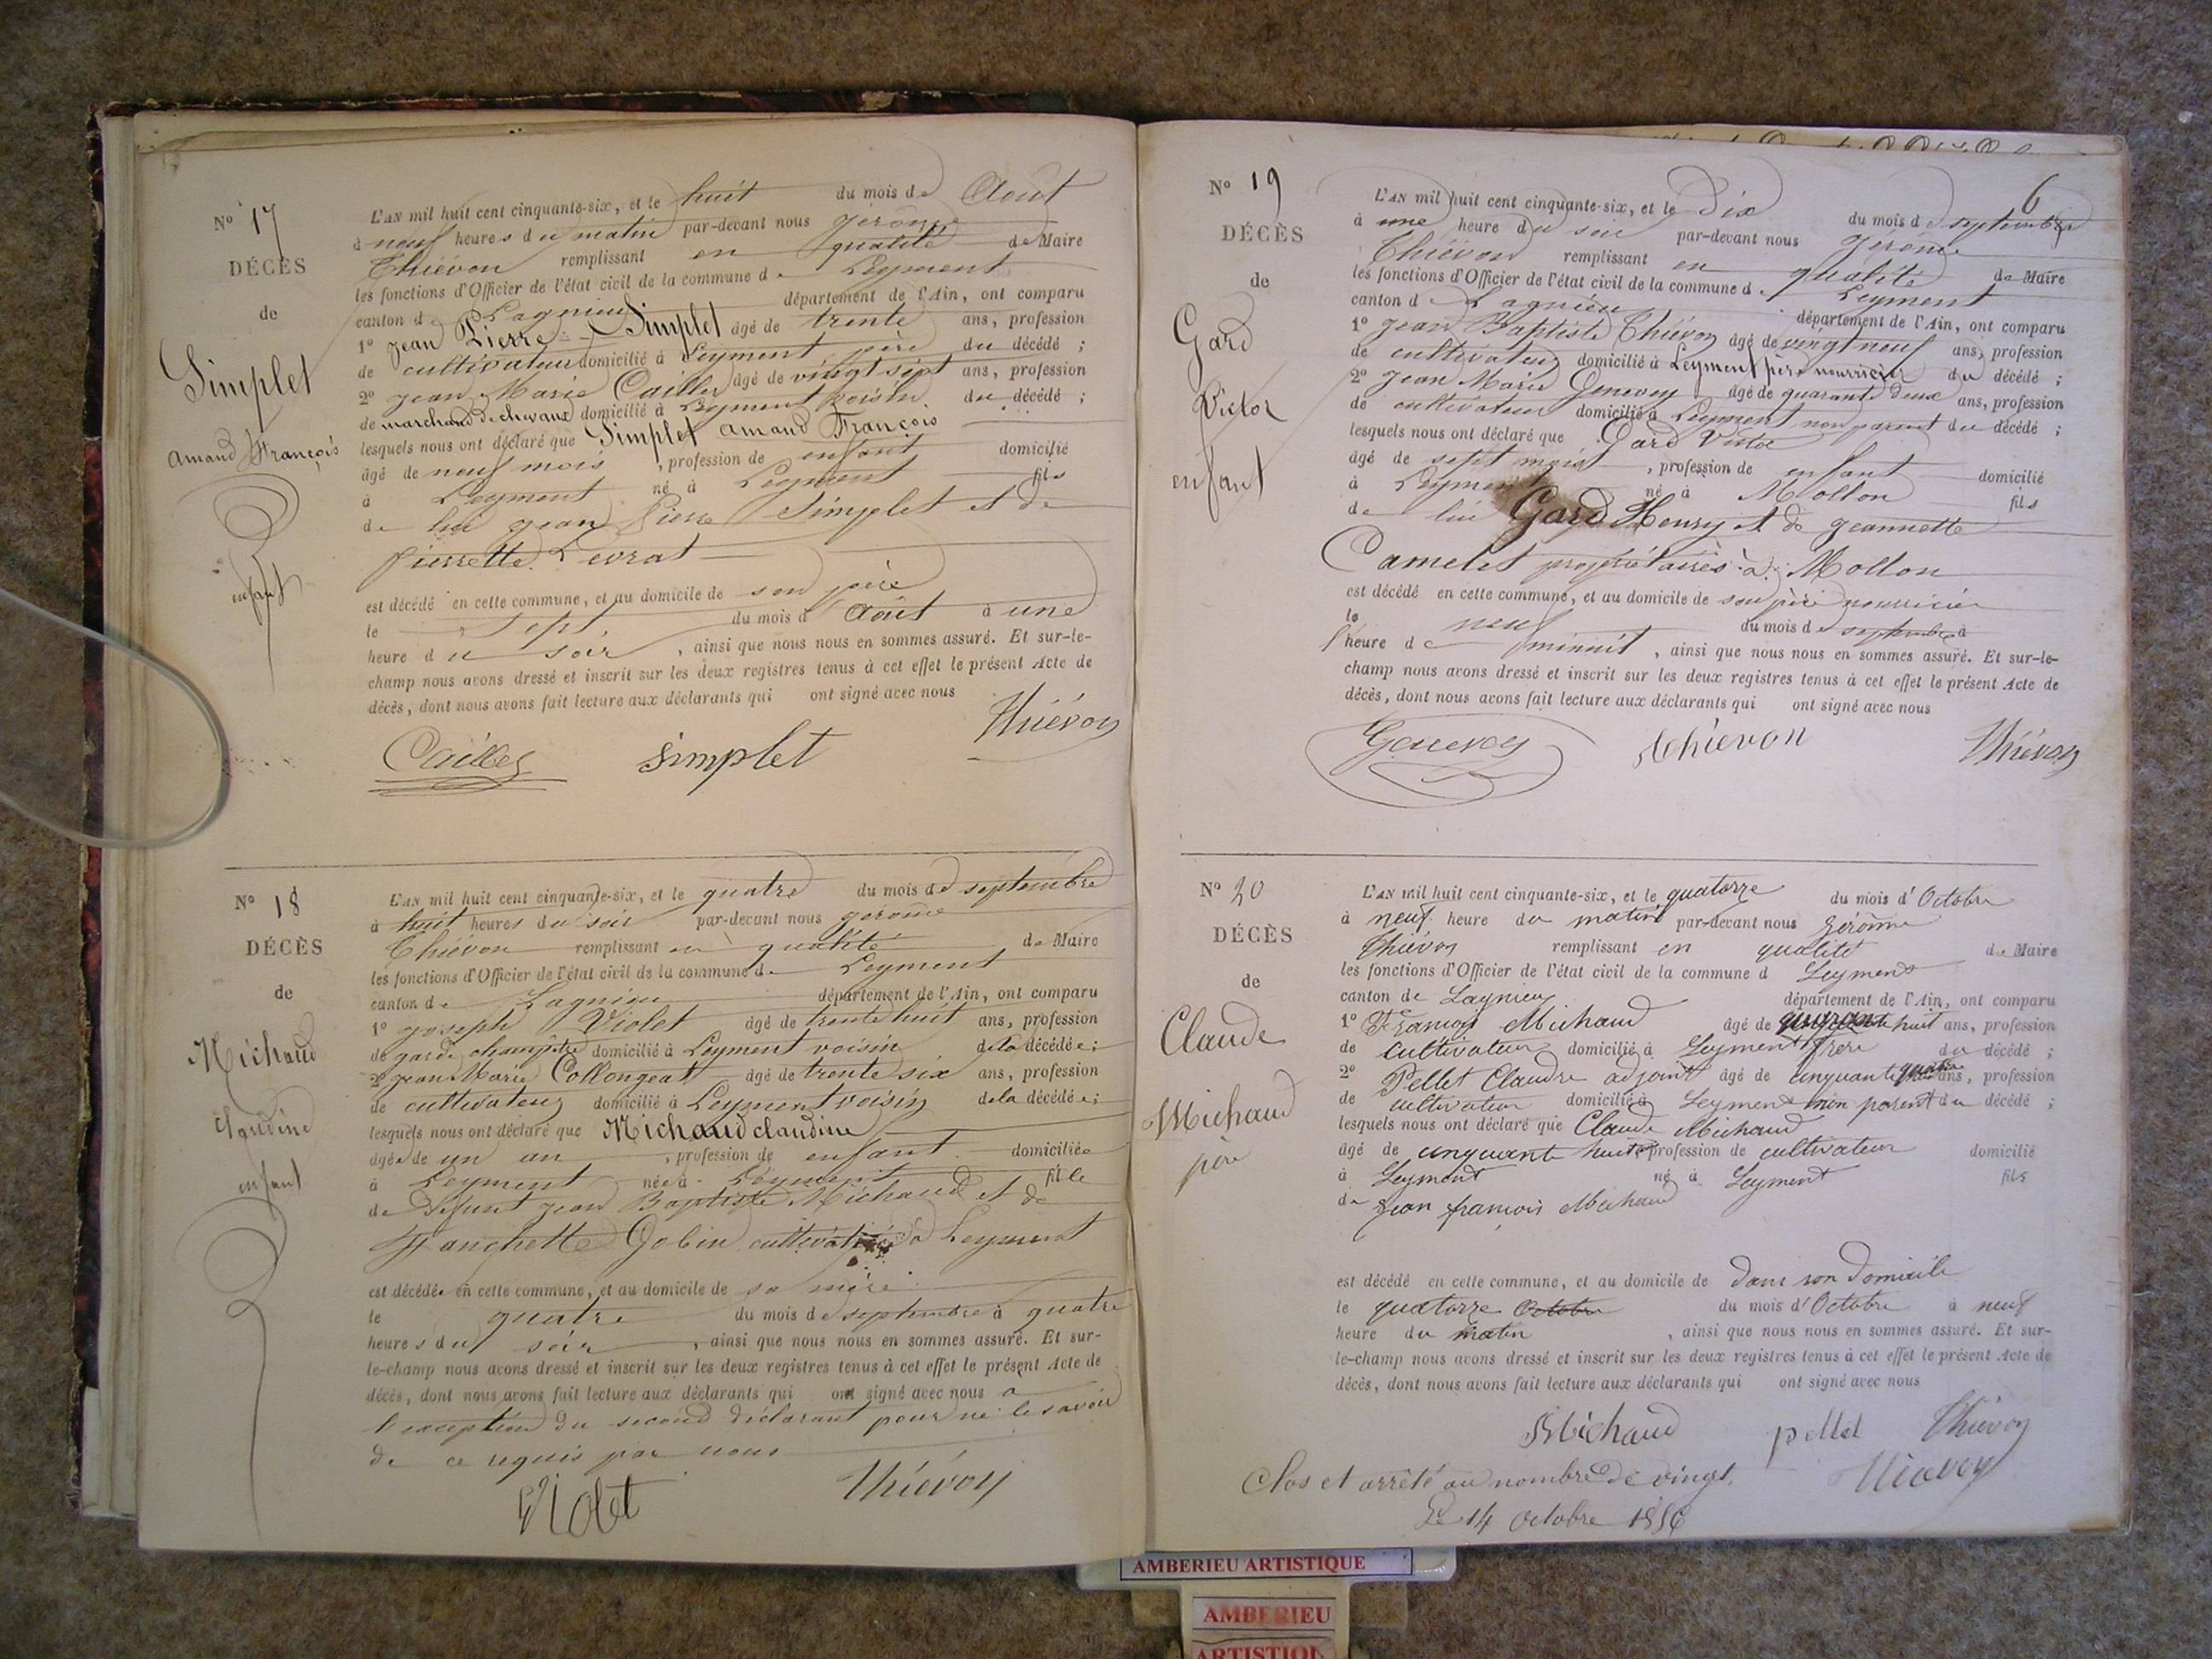 N° 17
DÉCÈS
de
Simplet
Amand François
enfant
L'AN mil huit cent cinquante-six, et le huit du mois de Août
à neuf heures du matin par-devant nous Jérome
Thiévon remplissant en qualité de Maire
les fonctions d'Officier de l'état civil de la commune de Leyment
canton de Lagnieu département de l'Ain, ont comparu
1° Jean Pierre Simplet âgé de trente ans, profession
de cultivateur domicilié à Leyment père du décédé ;
2° Jean Marie Caillez âgé de vingt sept ans, profession
de marchand de chevaux domicilié à Leyment voisin du décédé ;
lesquels nous ont déclaré que Simplet Amand François
âgé de neuf mois, profession de enfant domicilié
à Leyment né à Leyment fils
de lui Jean Pierre Simplet et de
Pierrette Levrat
est décédé en cette commune, et au domicile de son père
le sept, du mois d Août à une
heure du soir, ainsi que nous nous en sommes assuré. Et sur-le-
champ nous avons dressé et inscrit sur les deux registres tenus à cet effet le présent Acte de
décès, dont nous avons fait lecture aux déclarants qui ont signé avec nous
Caillez simplet Thiévon
N° 18
DÉCÈS
de
Michaud
Claudine
enfant
L'AN mil huit cent cinquante-six, et le quatre du mois de septembre
à huit heures du soir par-devant nous Gérome
Thiévon remplissant en qualité de Maire
les fonctions d'Officier de l'état civil de la commune de Leyment
canton de Lagnieu département de l'Ain, ont comparu
1° Joseph Violet âgé de trente huit ans, profession
de garde champêtre domicilié à Leyment voisin de la décédée ;
2° Jean Marie Collongeat âgé de trente six ans, profession
de cultivateur domicilié à Leyment voisin de la décédée ;
lesquels nous ont déclaré que Michaud claudine
âgée de un an, profession de enfant domiciliée
à Leyment née à Leyment fille
de Défunt Jean Baptiste Michaud et de
Franchette Gobin cultivatrice à Leyment
est décédée en cette commune, et au domicile de sa mère
le quatre du mois de septembre à quatre
heures du soir, ainsi que nous nous en sommes assuré. Et sur-
le-champ nous avons dressé et inscrit sur les deux registres tenus à cet effet le présent Acte de
décès, dont nous avons fait lecture aux déclarants qui ont signé avec nous a
l'exception du second déclarant pour ne le savoir
de ce requis par nous
Violet Thiévon
6
N° 19
DÉCÈS
de
Gard
Victor
enfant
L'AN mil huit cent cinquante-six, et le Dix du mois de septembre
à une heure du soir par-devant nous Jérome
Thiévon remplissant en qualité de Maire
les fonctions d'Officier de l'état civil de la commune de Leyment
canton de Lagnieu département de l'Ain, ont comparu
1° Jean Baptiste Thiévon âgé de vingt neuf ans, profession
de cultivateur domicilié à Leyment père nourricier du décédé ;
2° Jean Marie Genevey âgé de quarante deux ans, profession
de cultivateur domicilié à Leyment non parent du décédé ;
lesquels nous ont déclaré que Gard Victor
âgé de sept mois, profession de enfant domicilié
à Leyment né à Mollon fils
de lui Gard Henry et de Jeannette
Camelet propriétaires à Mollon
est décédé en cette commune, et au domicile de son père nourricier
le neuf du mois de septembre à
l'heure de minuit, ainsi que nous nous en sommes assuré. Et sur-le-
champ nous avons dressé et inscrit sur les deux registres tenus à cet effet le présent Acte de
décès, dont nous avons fait lecture aux déclarants qui ont signé avec nous
Genevey thievon Thiévon
N° 20
DÉCÈS
de
Claude
Michaud
père
L'AN mil huit cent cinquante-six, et le quatorze du mois d'Octobre
à neuf heure du matin par-devant nous Gérôme
Thiévon remplissant en qualité de Maire
les fonctions d'Officier de l'état civil de la commune d Leyment
canton de Lagnieu département de l'Ain, ont comparu
1° François Michaud âgé de huit ans, profession
de cultivateur domicilié à Leyment frère du décédé ;
2° Pellet Claudre adjoint âgé de cinquante quatre ans, profession
de cultivateur domicilié à Leyment non parent du décédé ;
lesquels nous ont déclaré que Claude Michaud
âgé de cinquante huit profession de cultivateur domicilié
à Leyment né à Leyment fils
de Jean françois Michaud
est décédé en cette commune, et au domicile de dans son domicile
le quatorze Octobre du mois d'Octobre à neuf
heure du matin, ainsi que nous nous en sommes assuré. Et sur-
le-champ nous avons dressé et inscrit sur les deux registres tenus à cet effet le présent Acte de
décès, dont nous avons fait lecture aux déclarants qui ont signé avec nous
Michaud pellet Thiévon
Clos et arrêté au nombre de vingt. Thiévon
Le 14 octobre 1856
AMBERIEU ARTISTIQUE
AMBERIEU
ARTISTIQU